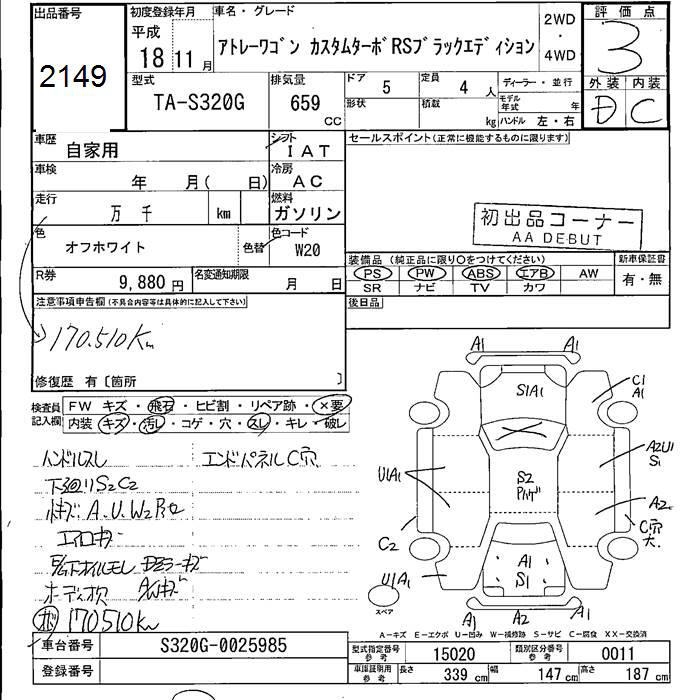 出品番号
2149
初度登録年月
平成
18 11月
車名・グレード
アトレーワゴン カスタムターボRSブラックエディション
2WD
・
4WD
評価点
3
外装 内装
D C
型式
TA-S320G
排気量
659 CC
ドア 5
形状
定員 4 人
積載 kg
ディーラー・並行
モデル年式 年
ハンドル 左・右
車歴
自家用
シフト
IAT
車検
年 月( 日)
冷房
AC
走行
万 千 km
燃料
ガソリン
色
オフホワイト
色替
色コード
W20
R券
9,880 円
名変通知期限
月 日
セールスポイント(正常に機能するものに限ります)
初出品コーナー
AA DEBUT
装備品(純正品に限り○をつけてください)
PS PW ABS エアB AW
SR ナビ TV カワ
新車保証書
有・無
後日品
注意事項申告欄(不具合内容等は具体的に記入して下さい)
170.510Km
修復歴 有〔箇所 〕
検査員記入欄
FW キズ・飛石・ヒビ割・リペア跡・×要
内装 キズ・汚し・コゲ・穴・スレ・キレ・破レ
ハンドルスレ
エンドパネルC穴
下廻りS2C2
A.U.W2
エアロキズ
オーディオ欠
170510Km
A1 A1
S1A1
C1
A1
U1A1
S2
A2U1
S1
A2
C穴
大
C2
A1
S1
U1A1
スペア
A1 A2 A1
A-キズ E-エクボ U-凹み W-補修跡 S-サビ C-腐食 XX-交換済
車台番号
S320G-0025985
登録番号
型式指定番号 参考 15020
類別区分番号 参考 0011
車庫証明用 参考 長さ 339 cm 幅 147 cm 高さ 187 cm